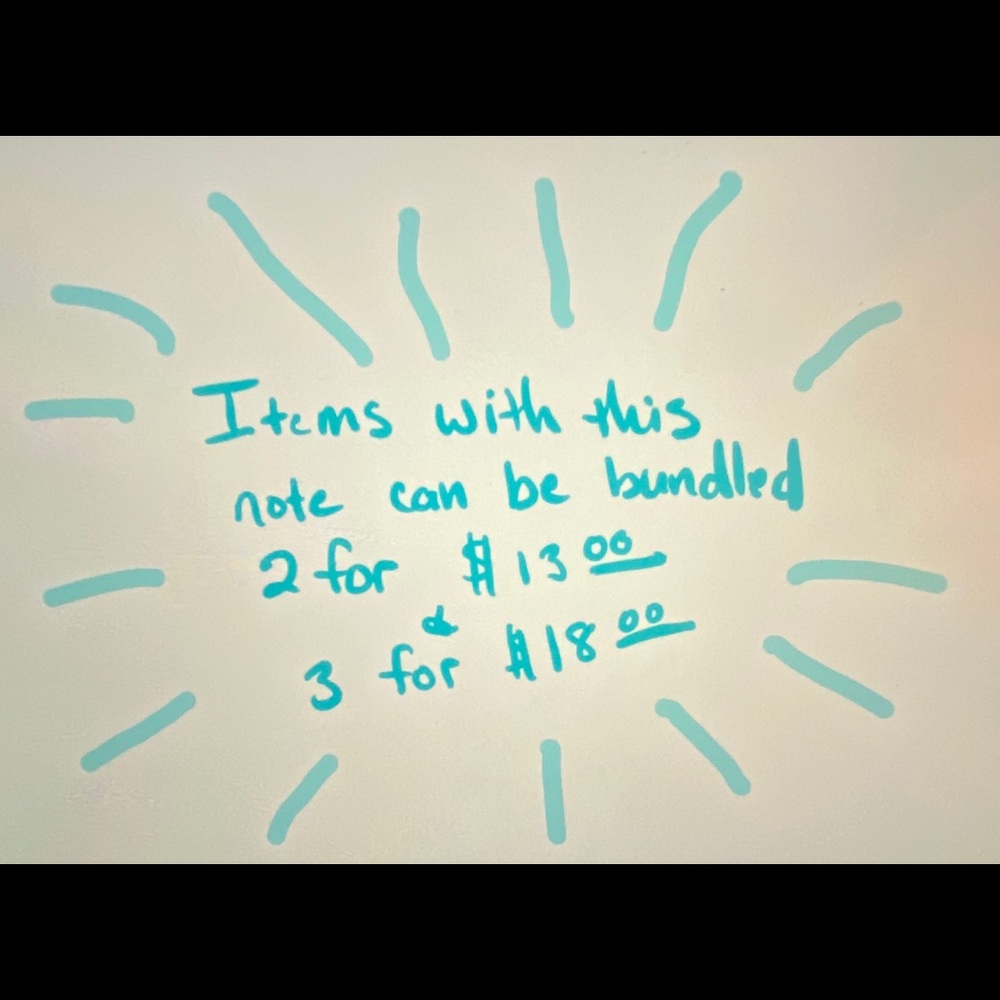 Items with this
note can be bundled
2 for $13.00
&
3 for $18.00